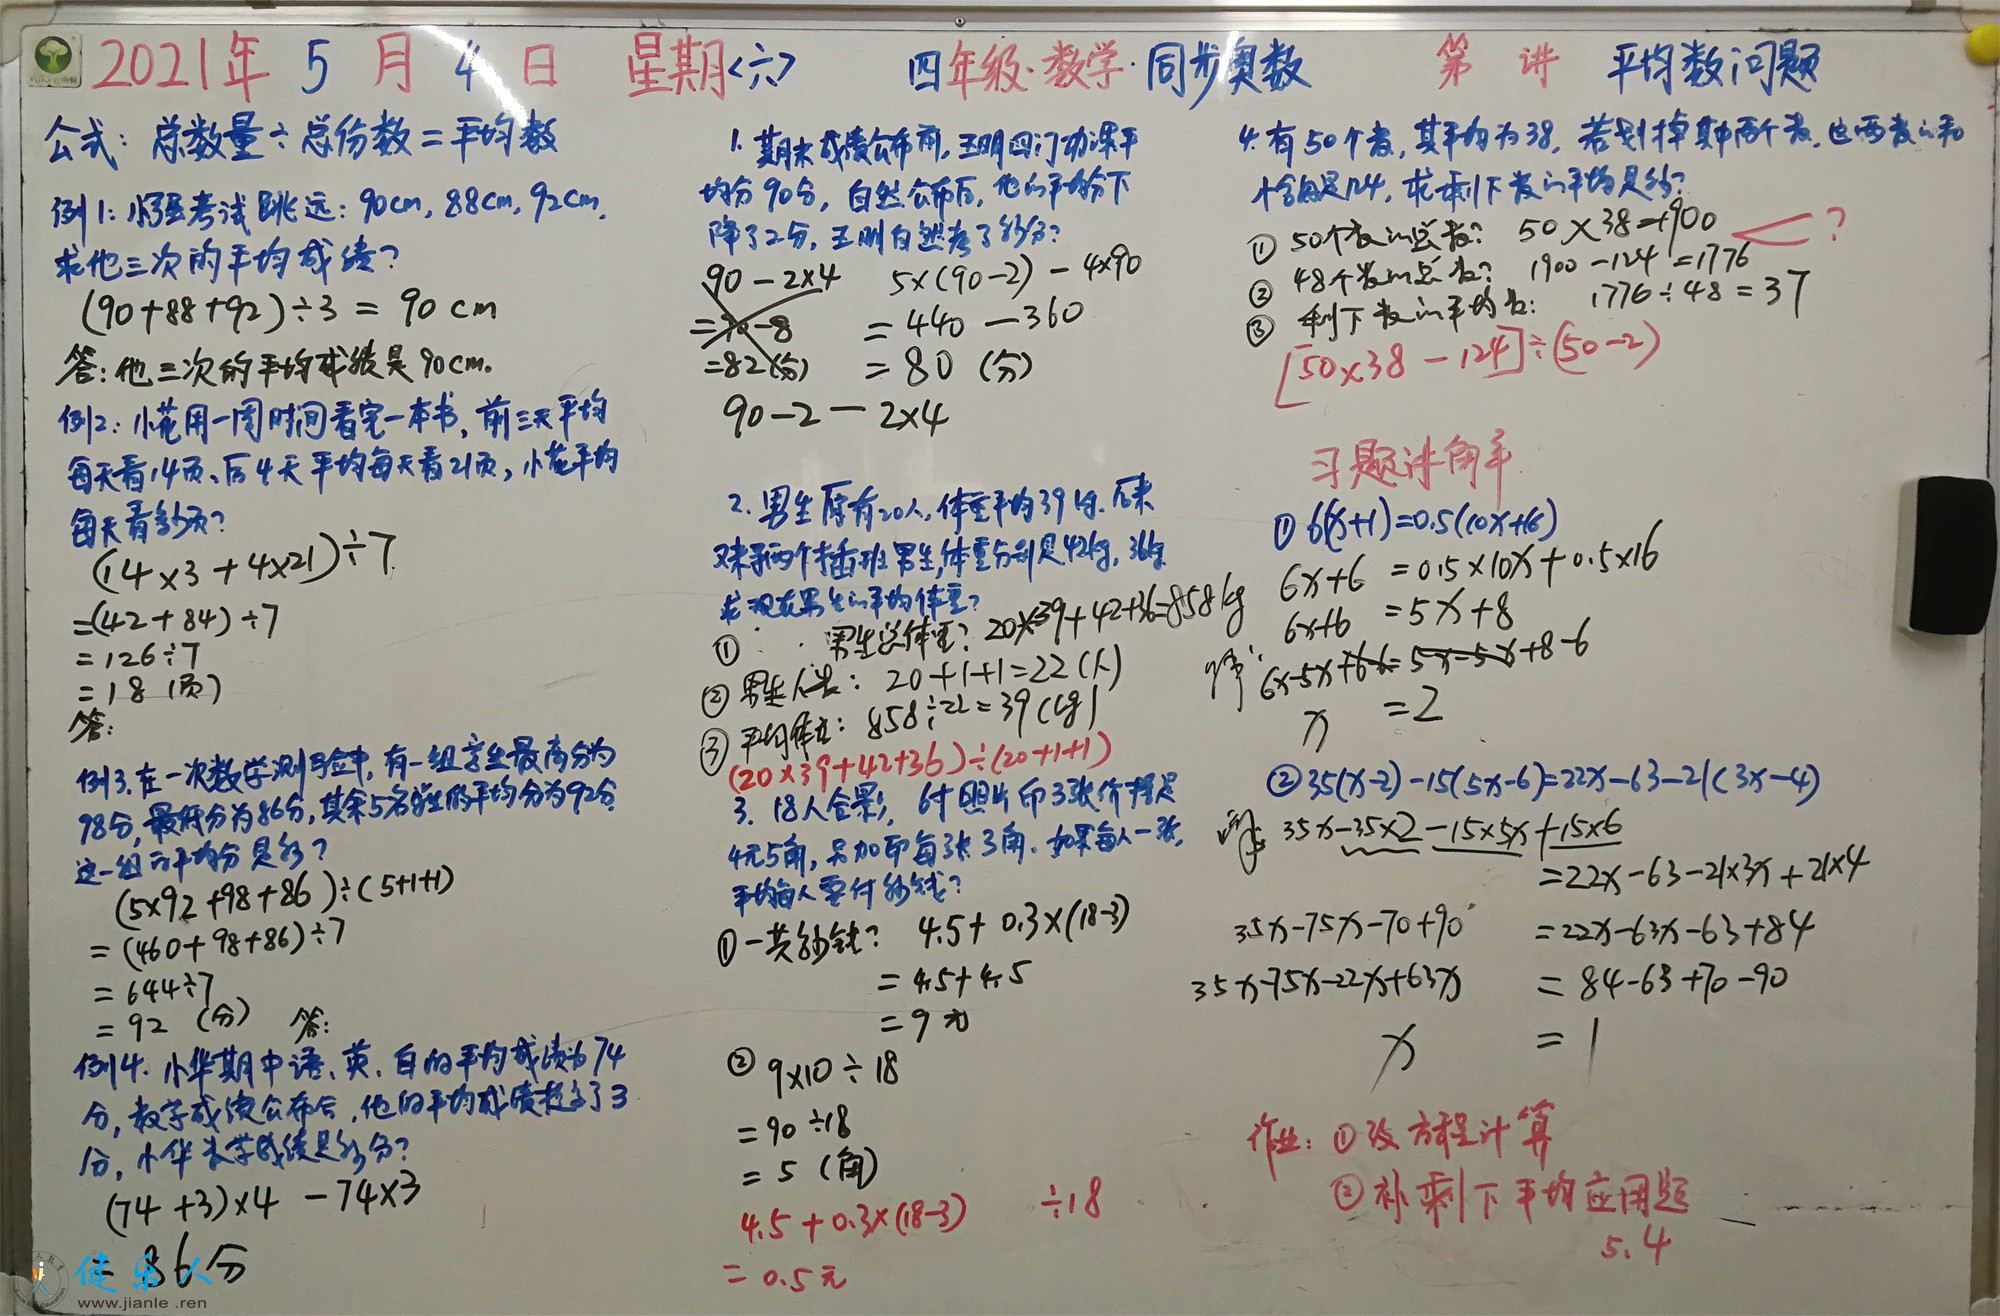 2021年 5 月 4 日 星期<六> 四年级·数学·同步奥数 第 讲 平均数问题
公式: 总数量÷总份数=平均数
例1:小强考试跳远:90cm, 88cm, 92cm.
求他三次的平均成绩?
(90+88+92)÷3 = 90 cm
答:他三次的平均成绩是90cm.
例2:小花用一周时间看完一本书, 前三天平均
每天看14页、后4天平均每天看21页, 小花平均
每天看多少页?
(14×3+4×21)÷7
=(42+84)÷7
=126÷7
=18(页)
答:
例3.在一次数学测验中,有一组学生最高分为
98分,最低分为86分,其余5名学生的平均分为92分.
这一组的平均分是多少?
(5×92+98+86)÷(5+1+1)
=(460+98+86)÷7
=644÷7
=92 (分) 答:
例4.小华期中语、英、自的平均成绩为74
分, 数学成绩公布后, 他的平均成绩提高了3
分, 小华数学成绩是多少分?
(74+3)×4 -74×3
= 86分
健乐人
www.jianle.ren
1. 期末成绩公布前,王明四门功课平
均分90分, 自然公布后, 他的平均分下
降了2分, 王明自然考了多少分?
90-2×4 5×(90-2)-4×90
=90-8 =440-360
=82(分) =80 (分)
90-2-2×4
2. 男生原有20人,体重平均39kg.后来
又来了两个插班男生,体重分别是42kg, 36kg
求现在男生的平均体重?
① 男生总体重? 20×39+42+36=858kg
② 男生人数: 20+1+1=22(人)
③ 平均体重: 858÷22=39(kg)
(20×39+42+36)÷(20+1+1)
3. 18人合影, 6寸照片印3张价格是
4元5角, 另加印每张3角. 如果每人一张,
平均每人要付多少钱?
①一共多少钱? 4.5+0.3×(18-3)
=4.5+4.5
=9元
② 9×10÷18
=90÷18
=5 (角)
4.5+0.3×(18-3) ÷18
=0.5元
4.有50个数, 其平均为38, 若划掉其中两个数, 这两数的和
恰好是124, 求剩下数的平均是多少?
① 50个数的总数? 50×38=1900 ?
② 48个数的总数? 1900-124=1776
③ 剩下数的平均数: 1776÷48=37
[50×38-124]÷(50-2)
习题讲解
① 6(x+1)=0.5(10x+16)
6x+6 =0.5×10x+0.5×16
6x+6 =5x+8
解: 6x-5x+6-6=5x-5x+8-6
x =2
② 35(x-2)-15(5x-6)=22x-63-21(3x-4)
解: 35x-35×2-15×5x+15×6
=22x-63-21×3x+21×4
35x-75x-70+90 =22x-63x-63+84
35x-75x-22x+63x =84-63+70-90
x =1
作业: ①改方程计算
②补剩下平均应用题
5.4